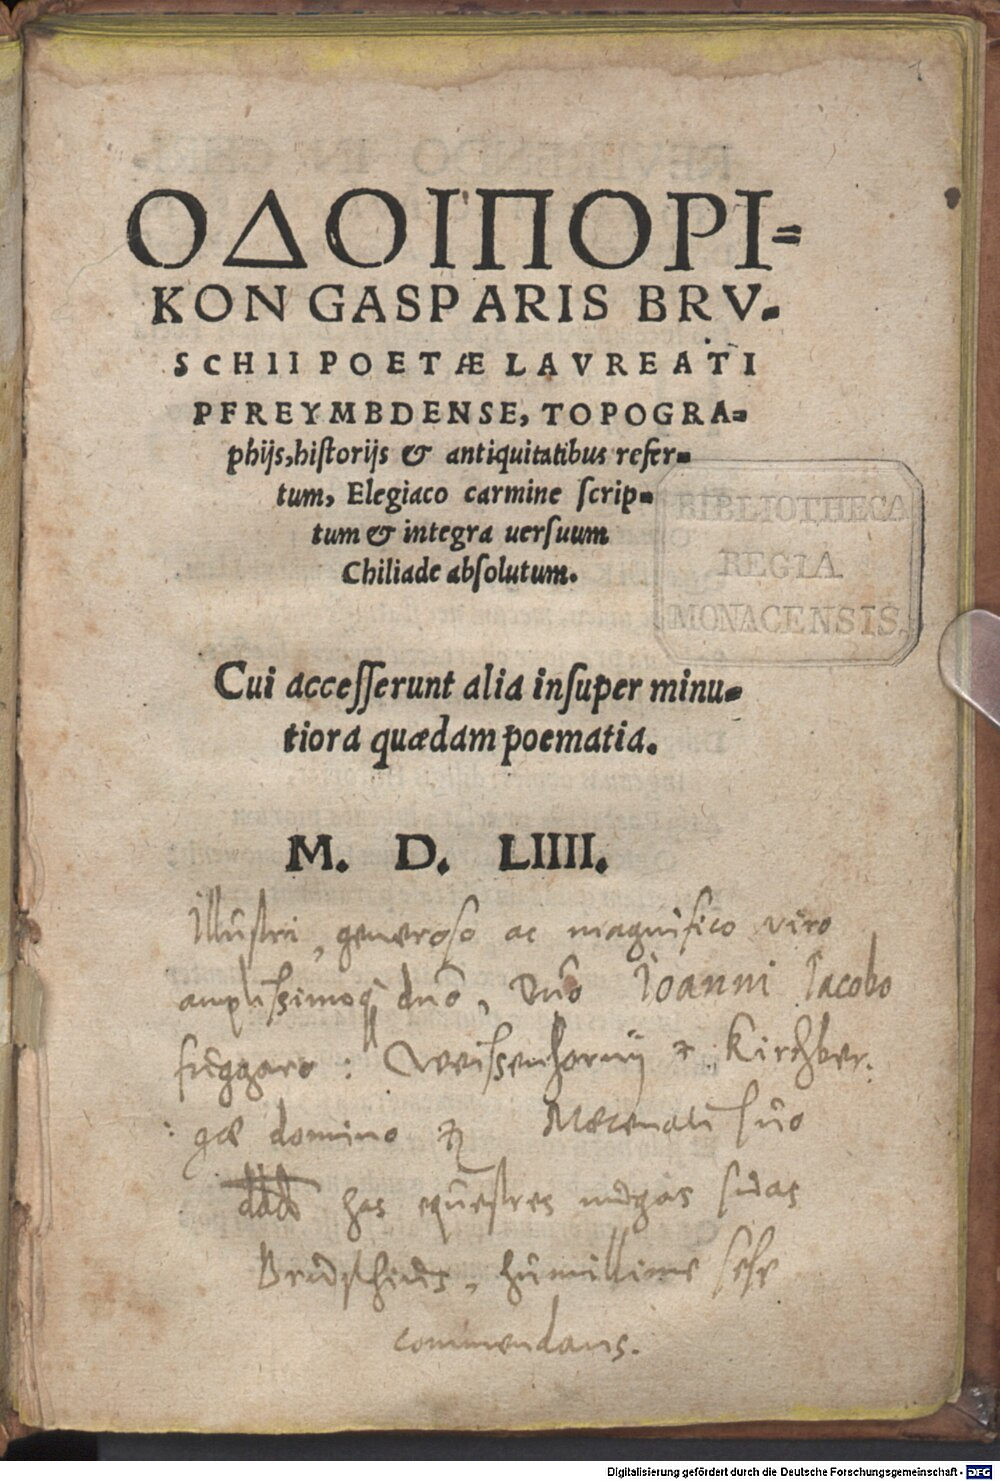 1
ΟΔΟΙΠΟΡΙ=
KON GASPARIS BRV.
SCHII POETÆ LAVREATI
PFREYMBDENSE, TOPOGRA=
phijs,hiſtorijs & antiquitatibus refer=
tum, Elegiaco carmine ſcrip=
tum & integra uerſuum
Chiliade abſolutum.
BIBLIOTHECA
REGIA
MONACENSIS.
Cui acceſſerunt alia inſuper minu=
tiora quædam poematia.
M. D. LIIII.
Illuſtri, generoſo ac magnifico viro
ampliſsimoq₃ dño, Dño Ioanni Iacobo
fuggaro : Weiſsenhornij & Kirchber.
gæ domino Mæcenati ſuo
has equeſtres nugas ſuas
Bruſchius, humillime ſeſe
commendans.
Digitalisierung gefördert durch die Deutsche Forschungsgemeinschaft - DFG